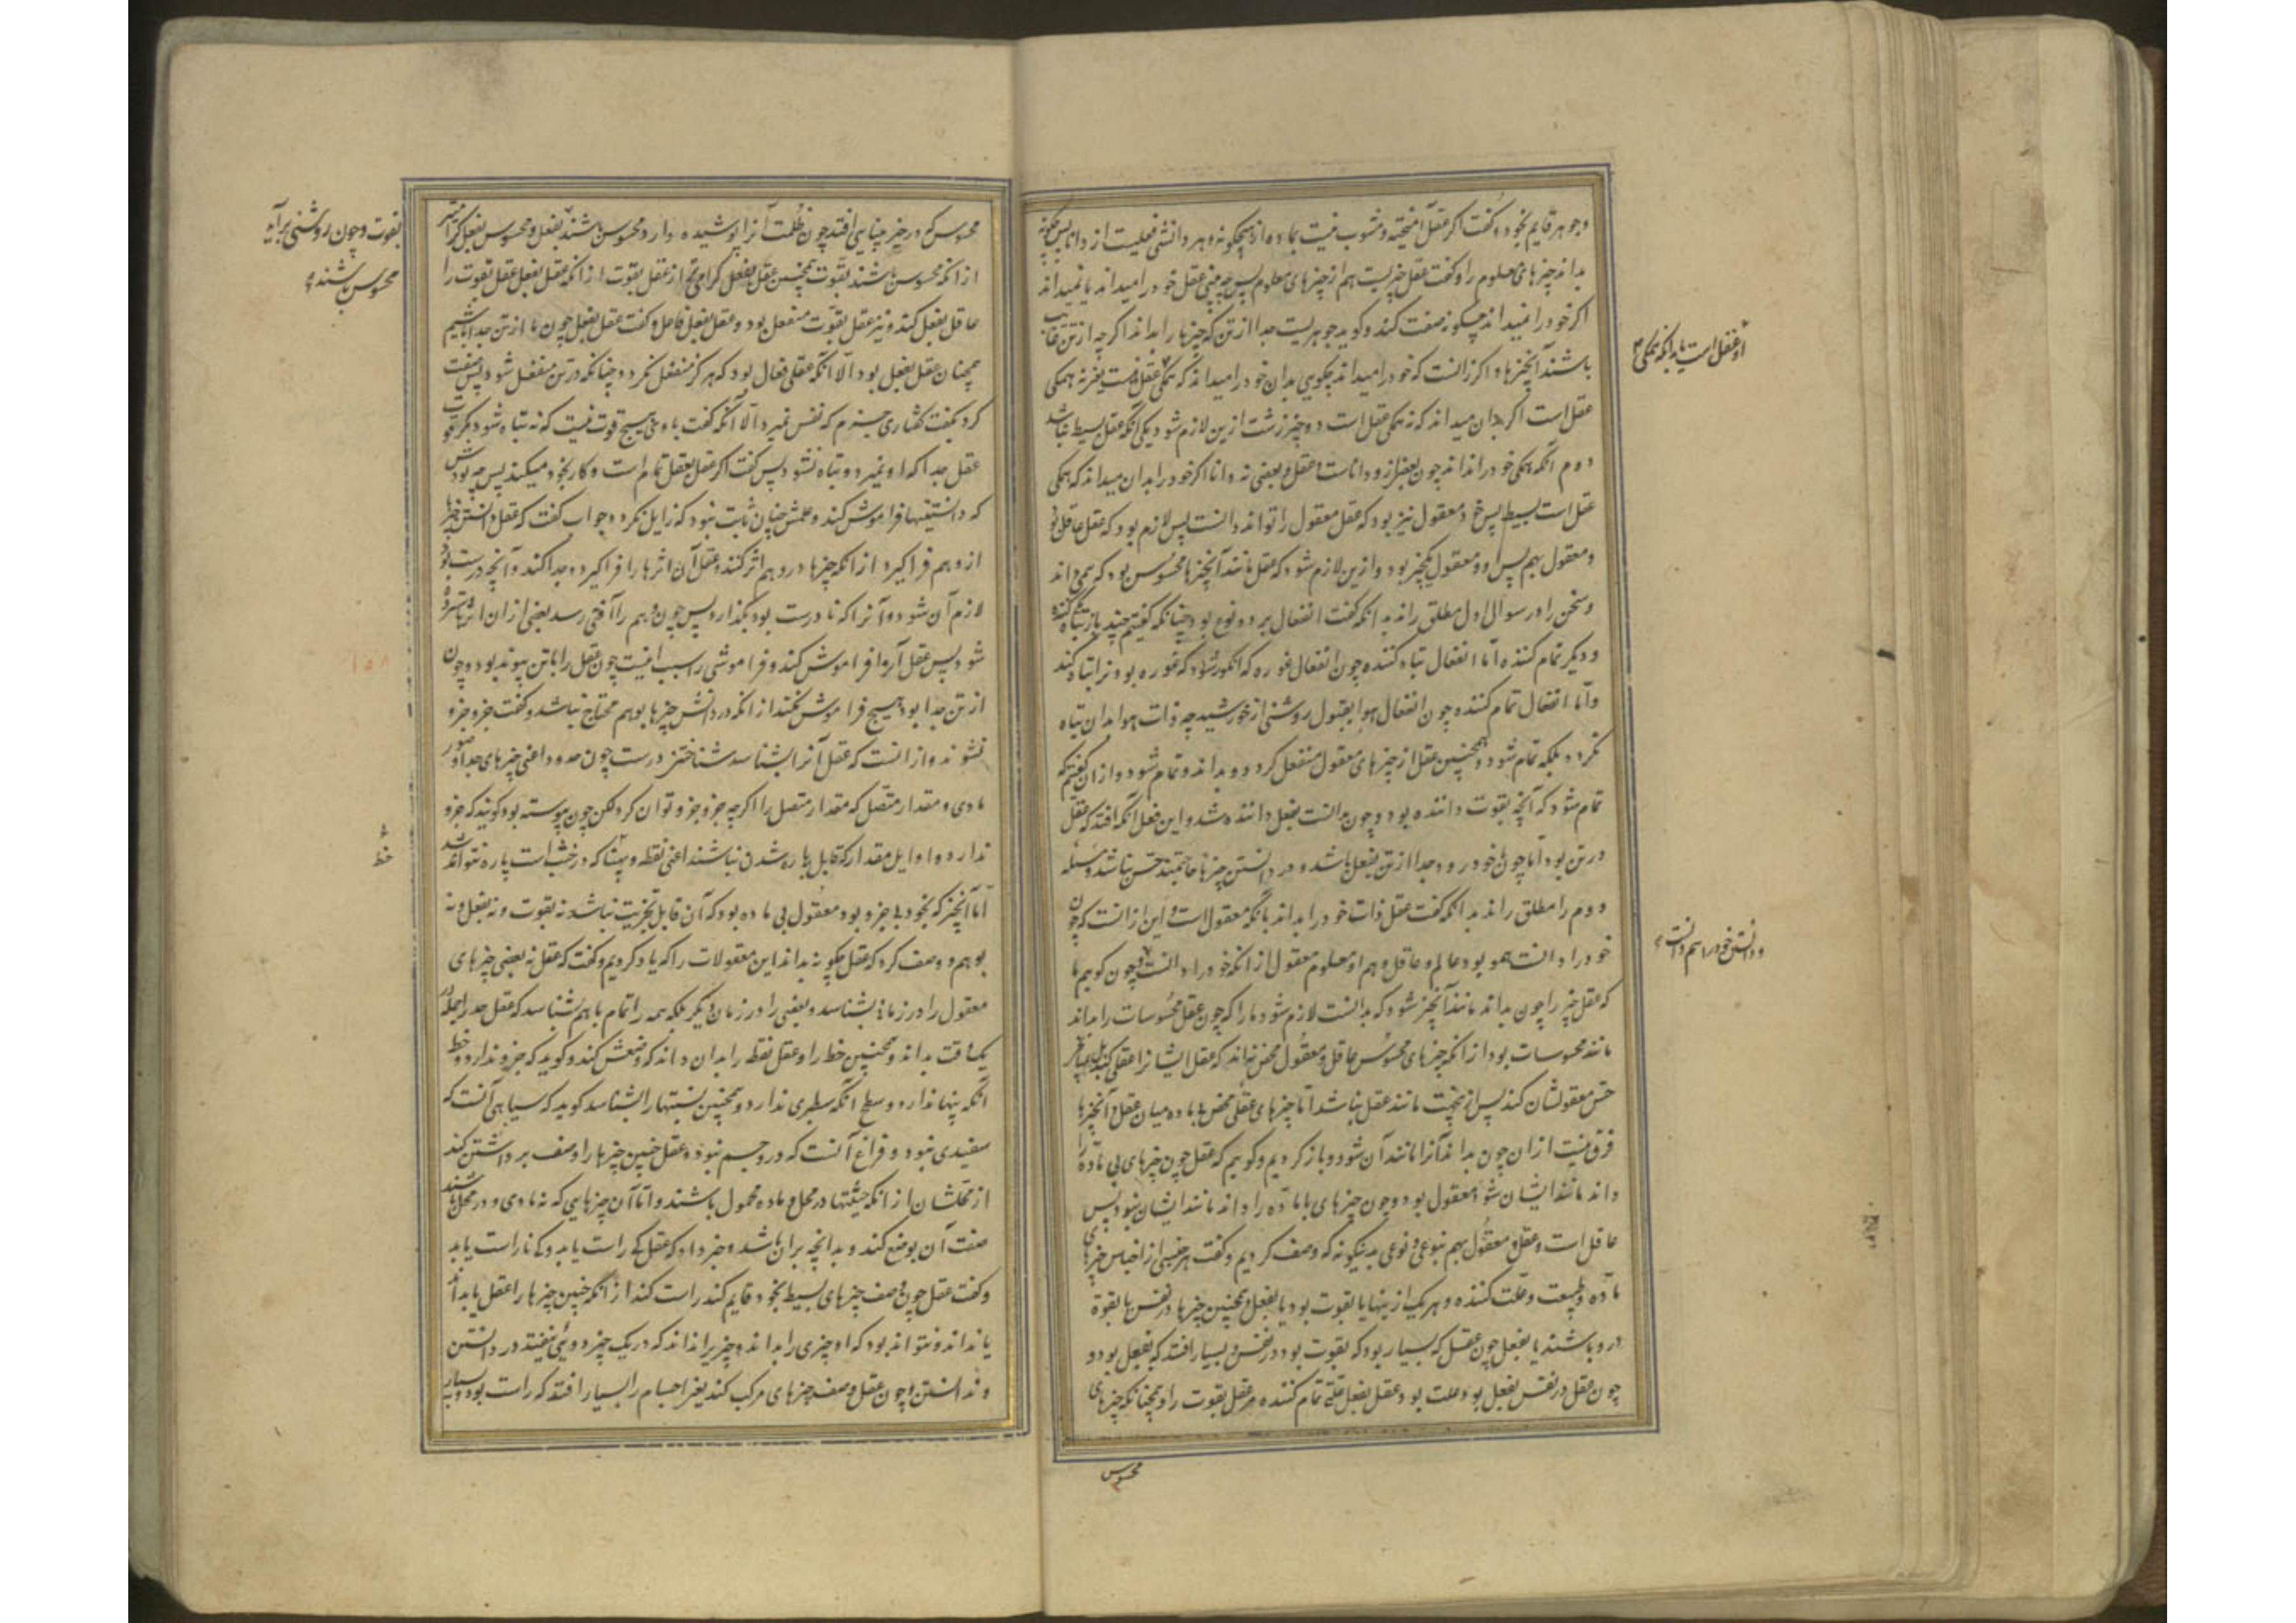 وجوهر قایم بخود، گفت اگر عقل آمیخته و مشوب نیست بماده از هیچگونه و هر دانشی فعلیست از دانا پس چگونه
بداند چیزهای معلوم را و گفت عقل چیزیست هم از چیزهای معلوم پس چه بینی عقل خود را میداند یا نمیداند
اگر خود را نمیداند چگونه صفت کند و گوید جوهریست جدا از تن که چیزها را بداند اگرچه از تن غایب
باشند آنچیزها و اگر زانست که خود را میداند چگویی بدان خود را میداند که همگی عقل نیست یعنی نه همگی
عقل است اگر بدان میداند که نه همگی عقل است دو چیز زشت ازین لازم شود یکی آنکه عقل بسیط نباشد
دوم آنکه همگی خود را نداند چون بعضی ازو داناست و عقل و بعضی نه دانا اگر خود را بدان میداند که همگی
عقل است بسیط پس خود معقول نیز بود که عقل معقول را تواند دانست پس لازم بود که عقل عاقل بود
و معقول بهم پس او و معقول یکچیز بود و ازین لازم شود که عقل مانند آنچیزها محسوس بود که همی داند
و سخن را در سوال اول مطلق راند بدانکه گفت انفعال بر دو نوع بود چنانکه گفتیم چند بار تباه کننده
و دیگر تمام کننده اما انفعال تباه کننده چون انفعال غوره که انگور شود که غوره بود نرا تباه کند
و اما انفعال تمام کننده چون انفعال هوا بقبول روشنی از خورشید چه ذات هوا بدان تباه
نگردد بلکه تمام شود و همچنین عقل از چیزهای معقول منفعل گردد و بداند و تمام شود و ازان گفتیم که
تمام شود که آنچه بقوت داننده بود و چون بدانست بفعل داننده شد و این فعل آنگه افتد که عقل
در تن بود اما چون خود رود و جدا از تن بفعل باشد و در دانستن چیزها حاجتمند حس نباشد و مسئله
دوم را مطلق راند بدانکه گفت عقل ذات خود را بداند بآنکه معقول است و این ازانست که چون
خود را دانست همو بود عالم و عاقل و هم او معلوم و معقول از آنکه خود را دانست و چون گوییم ما
که عقل چیز را چون بداند مانند آنچیز شود که بدانست لازم شود ما را که چون عقل محسوسات را بداند
مانند محسوسات بود از آنکه چیزهای محسوس عاقل و معقول محض نه‌اند که عقل ایشانرا عقلی کند بل
حس معقولشان کند پس از نخست مانند عقل نباشد اما چیزهای عقلی محض بی ماده میان عقل و آنچیزها
فرق نیست ازان چون بداند آنرا مانند آن شود و باز گردیم و گوییم که عقل چون چیزهای بی ماده را
داند مانند ایشان شود معقول بود و چون چیزهای با ماده را داند مانند ایشان نبود پس
عاقل است و عقل و معقول بهم بنوعی و نوعی بدینگونه که وصف کردیم و گفت هر جنسی از اجناس چیزها
ماده و طبیعت و علت کننده و هریک ازینها یا بقوت بود یا بفعل و همچنین چیزها در نفس یا بقوة
درو باشند یا بفعل چون عقل که بسیار بود که بقوت بود در نفس و بسیار افتد که بفعل بود و
چون عقل در نفس بفعل بود علت بود و عقل بفعل علتی تمام کننده مر عقل بقوت را و همچنانکه چیزهای
محسوس
او عقل است یا بدانکه همگی
و دانستن خود را هم دانست
محسوس که در حیز بینایی افتد چون ظلمت آنرا پوشیده دارد محسوس باشند بفعل و محسوس بفعل گرامیتر
از آنکه محسوس باشند بقوت همچنین عقل بفعل گرامی‌تر از عقل بقوت از آنکه عقل بفعل عقل بقوت را
عاقل بفعل کند و نیز عقل بقوت منفعل بود و عقل بفعل فاعل و گفت عقل بفعل چون ما از تن جدا باشیم
همچنان عقل بفعل بود الا آنکه عقلی فعال بود که هرگز منفعل نگردد چنانکه در تن منفعل شود پس صفت
کرد بگفت گفتاری جزم که نفس نمیرد الا آنکه گفت با وی هیچ قوت نیست که نه تباه شود مگر قوت
عقل جدا که او نمیرد و تباه نشود پس گفت اگر عقل بعقل تمام است و کار بخود میکند پس چه بودش
که دانستنیها فراموش کند و علمش چنان ثابت نبود که زایل نگردد جواب گفت که عقل دانستن چیزها
از وهم فراگیرد از آنکه چیزها در وهم اثر کنند و عقل آن اثرها را فراگیرد و جدا کند و آنچه درست بود
لازم آن شود و آنرا که نادرست بود بگذارد پس چون وهم را آفتی رسد بعضی ازان اثرها سترده
شود پس عقل آنرا فراموش کند و فراموشی را سبب اینست چون عقل را با تن پیوند بود و چون
از تن جدا بود هیچ فراموش نکند از آنکه در دانش چیزها بوهم محتاج نباشد و گفت جزو جزو
نشوند و ازانست که عقل آنرا بشناسد شناختن درست چون حدود اعنی چیزهای جدا و صور
مادی و مقدار متصل که مقدار متصل را اگرچه جزو جزو توان کرد لکن چون پیوسته بود گویند که جزو
ندارد و اوایل مقدار که قابل پاره شدن نباشند اعنی نقطه و پهنا که در خشت است پاره نتواند شد
اما آنچیز که بخود بی جزو بود معقول بی ماده بود که آن قابل تجزیت نباشد نه بقوت و نه بفعل و نه
بوهم و وصف کرد که عقل چگونه بداند این معقولات را که یاد کردیم و گفت که عقل نه بعضی چیزهای
معقول را در زمانی بشناسد و بعضی را در زمان دیگر بلکه همه را تمام باهم شناسد که عقل حد را جمله در
یک وقت بداند و همچنین خط را و عقل نقطه را بدان داند که وضعش کند و گوید که جزو ندارد و خط
آنکه پهنا ندارد و سطح آنکه سطبری ندارد و همچنین نیستیها را بشناسد گوید که سیاهی آنست که
سفیدی نبود و فراغ آنست که درو جسم نبود و عقل چنین چیزها را وصف بر داشتن کند
از محلشان از آنکه هیئتها در محل و ماده محمول باشند و اما آن چیزهایی که نه مادی و در محل باشند
صفت آن بوضع کند و بدانچه بران باشد و خبر داد که عقل کی راست یابد و کی ناراست یابد
و گفت عقل چون وصف چیزهای بسیط بخود قایم کند راست کند از آنکه چنین چیزها را عقل یا بداند
یا نداند و نتواند بود که او چیزی را بداند و چیز برا نداند که در یک چیز دوئی نیفتد در دانستن
و ندانستن و چون عقل وصف چیزهای مرکب کند یعنی اجسام را بسیار افتد که راست بود و بسیار
بقوت و چون روشنی برآید
محسوس باشند
خط